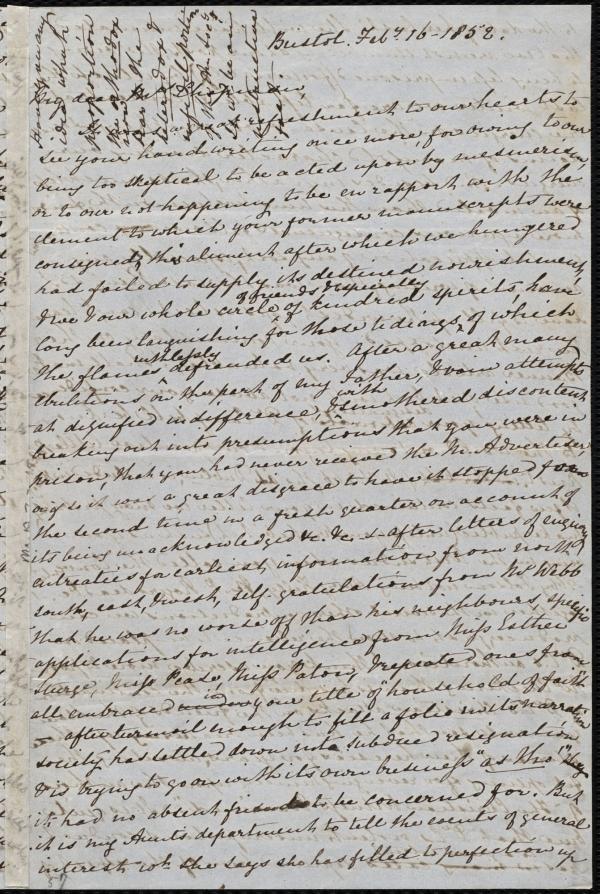 Bristol. Feby. 16 - 1852.
My dear Mrs Chapman
It was a great refreshment to our hearts to
see your handwriting once more, for owing to our
being too skeptical to be acted upon by mesmerism,
or to our not happening to be en rapport with the
element to which your former manuscripts were
consigned, the aliment after which we hungered
had failed to supply its destined nourishment,
& we & our whole circle of friends & especially of kindred spirits, have
long been languishing for those tidings of which
the flames ruthlessly defrauded us. After a great many
ebullitions on the part of my Father, & vain attempts
at dignified indifference, & with smothered discontent
breaking out into presumptions that you were in
prison, that you had never received the M. Advertiser,
or if so it was a great disgrace to have it stopped for
the second time in a fresh quarter on account of
its being unacknowledged &c. &c. & after letters of enquiry
entreaties for earliest information from north,
south, east, & west, self gratulations from Mr Webb
that he was no worse off than his neighbours, specific
applications for intelligence from Miss Esther
Sturge, Miss Pease, Miss Paton, & repeated ones from
all embraced in your title of "household of faith"
— after turmoil enough to fill a folio in its narration
society has settled down into subdued resignation
& is trying to go on with its own business "as tho'" they
it had no absent friends to be concerned for. But
it is my Aunt's department to tell the events of general
interest wh. she says she has filled to perfection up